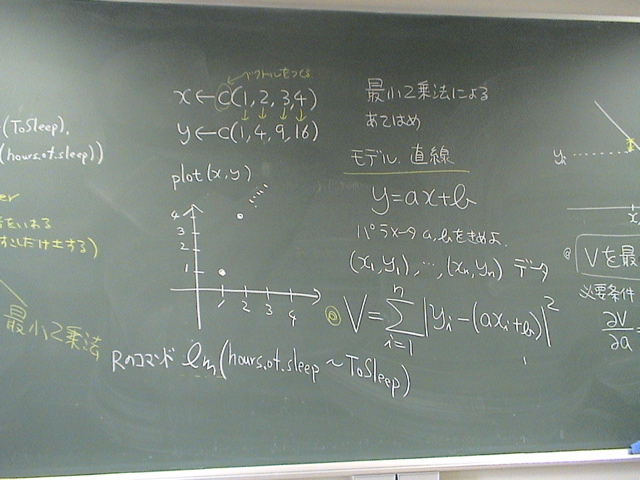 (ToSleep),
(hours.of.sleep))
最小2乗法
ベクトルをつくる
x←c(1, 2, 3, 4)
y←c(1, 4, 9, 16)
plot(x, y)
4
3
2
1
1 2 3 4
Rのコマンド lm(hours.of.sleep ~ ToSleep)
最小2乗法による
あてはめ
モデル 直線
y=ax+b
パラメータ a, bをきめよ.
(x₁, y₁), …, (xₙ, yₙ) データ
V=∑ⁿᵢ₌₁|yᵢ-(axᵢ+b)|²
yᵢ
Vを最
必要条件
∂V/∂a=